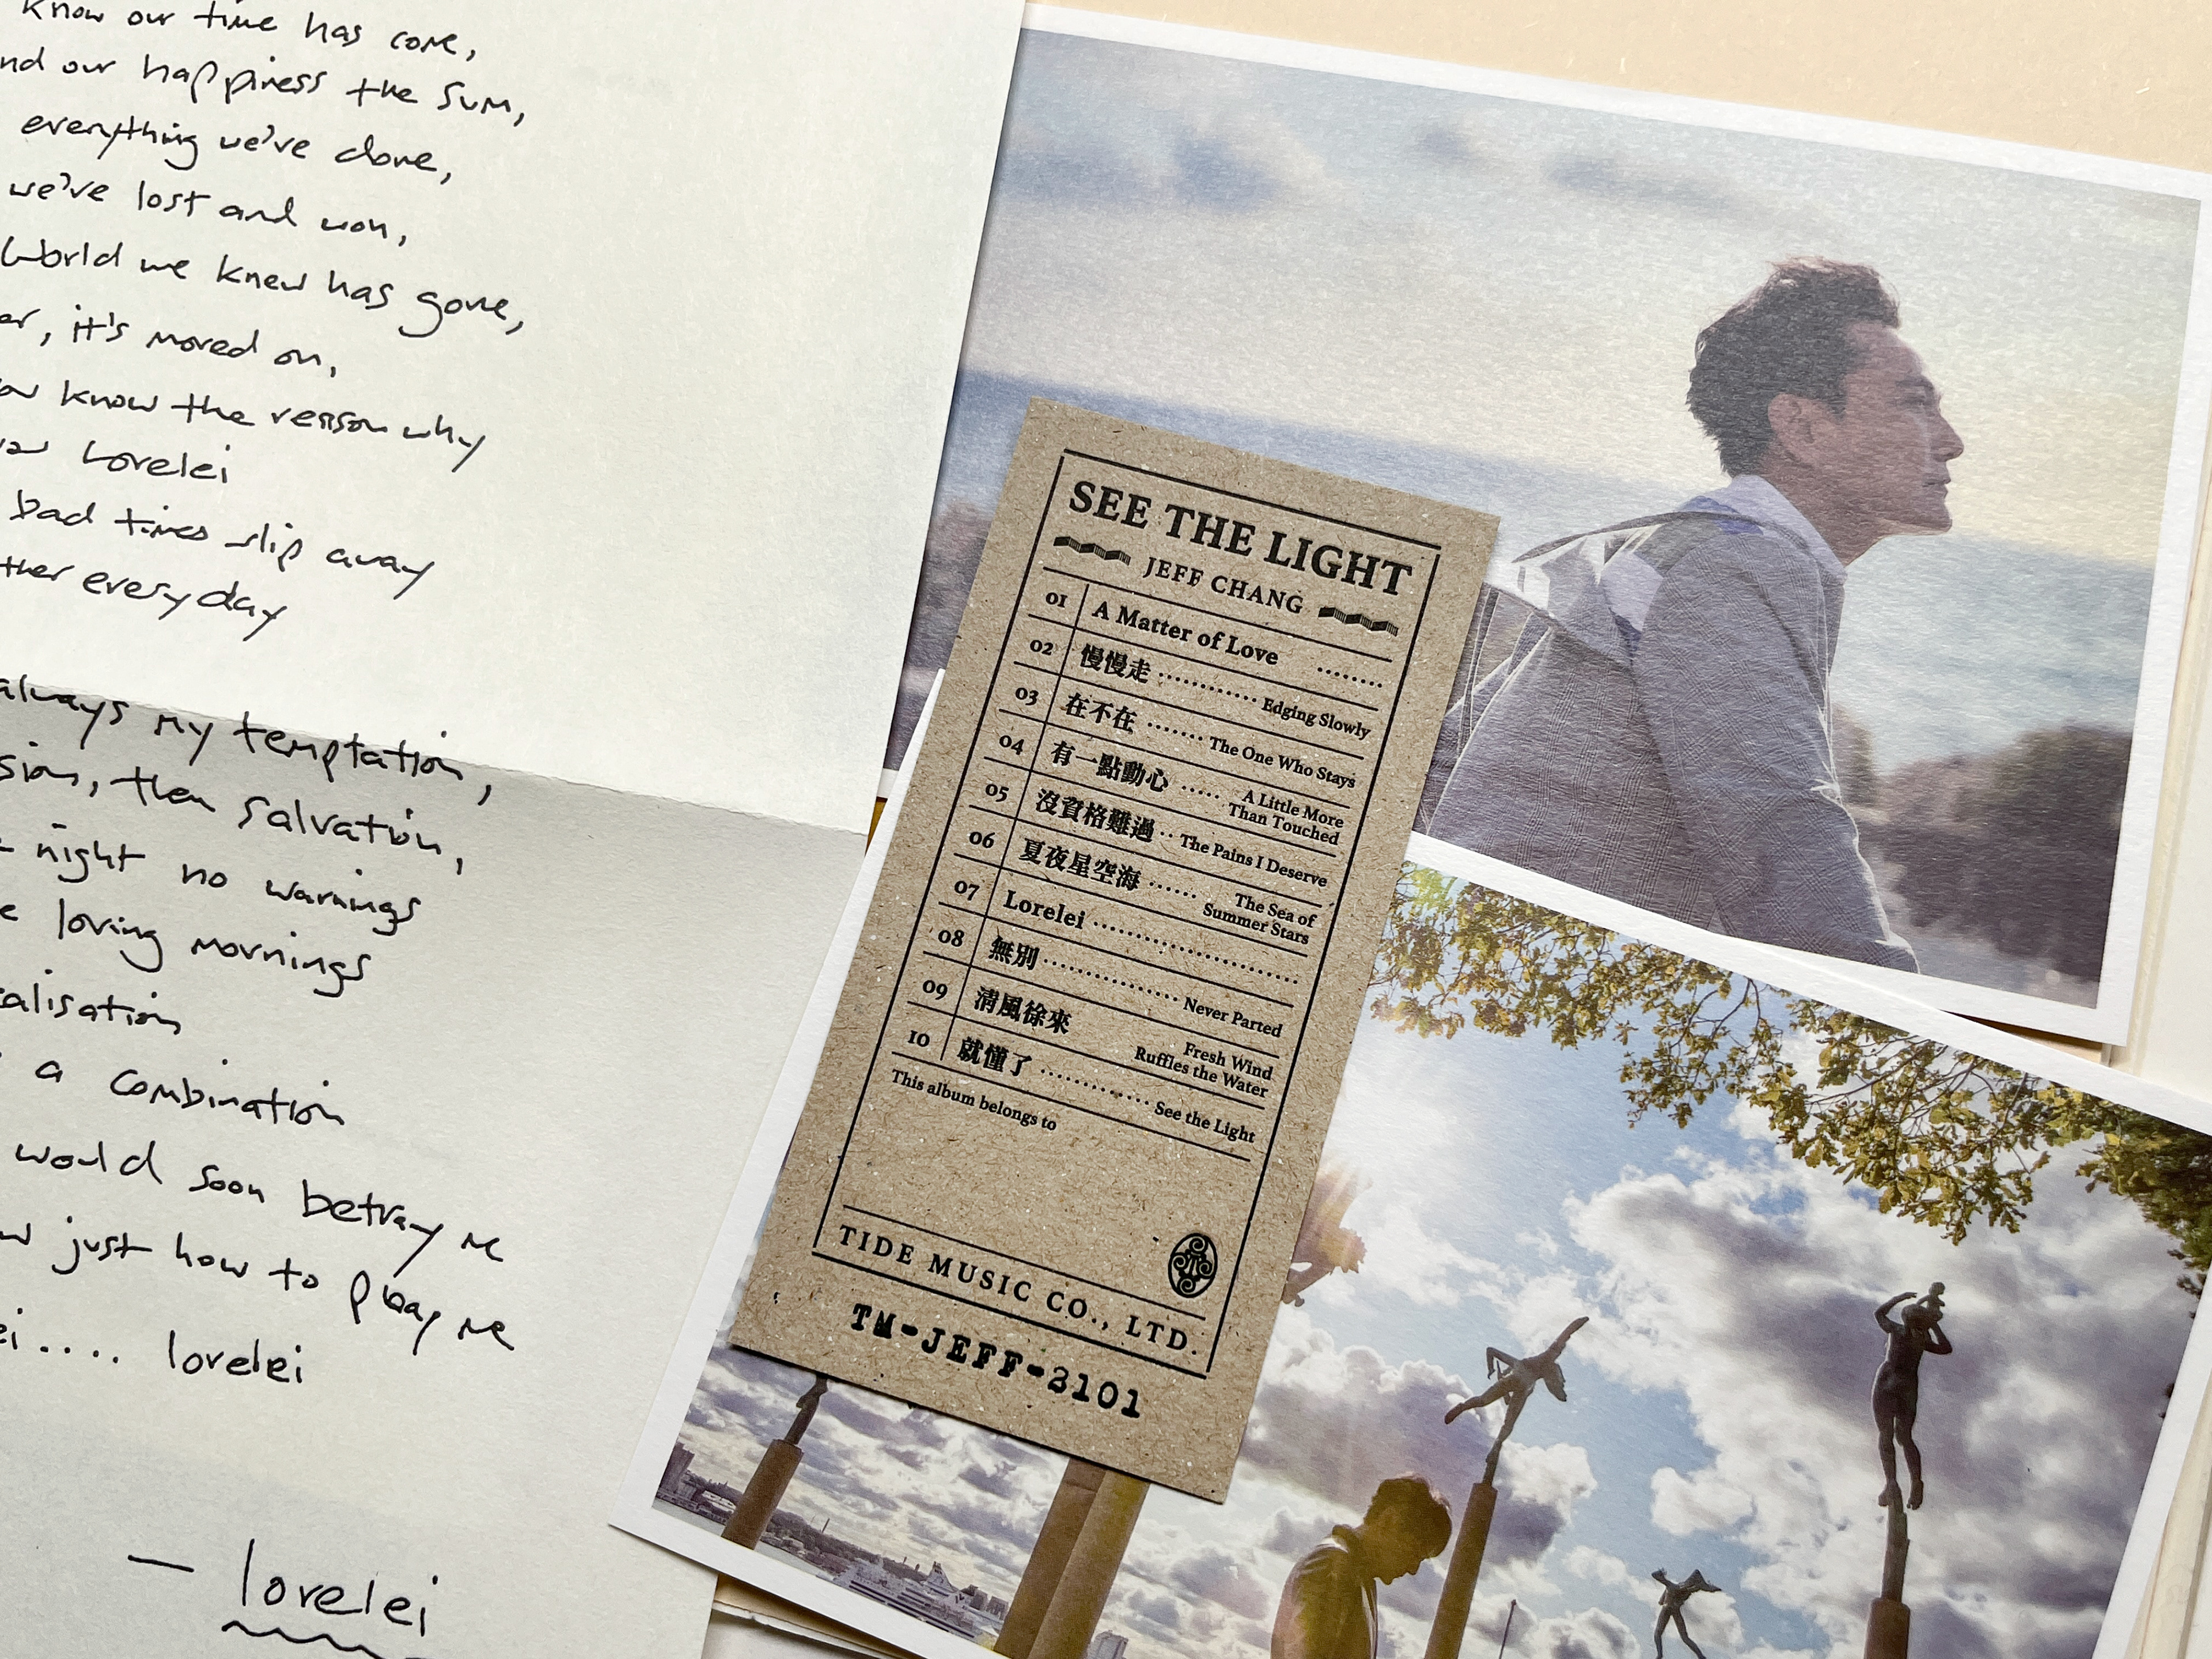 know our time has come,
nd our happiness the sum,
everything we've done,
we've lost and won,
World we knew has gone,
er, it's moved on,
ow know the reason why
Lorelei
bad times slip away
ther everyday
always my temptation,
sion, then salvation,
night no warnings
e loving mornings
ealisation
a combination
would soon betray me
w just how to play me
ei.... lorelei
— lorelei
SEE THE LIGHT
JEFF CHANG
01 A Matter of Love ........
02 慢慢走 ............. Edging Slowly
03 在不在 ........ The One Who Stays
04 有一點動心 ..... A Little More
Than Touched
05 沒資格難過 .. The Pains I Deserve
06 夏夜星空海 ...... The Sea of
Summer Stars
07 Lorelei ..........................
08 無別 .................. Never Parted
09 清風徐來 Fresh Wind
Ruffles the Water
10 就懂了 .............. See the Light
This album belongs to
TIDE MUSIC CO., LTD.
TM-JEFF-2101